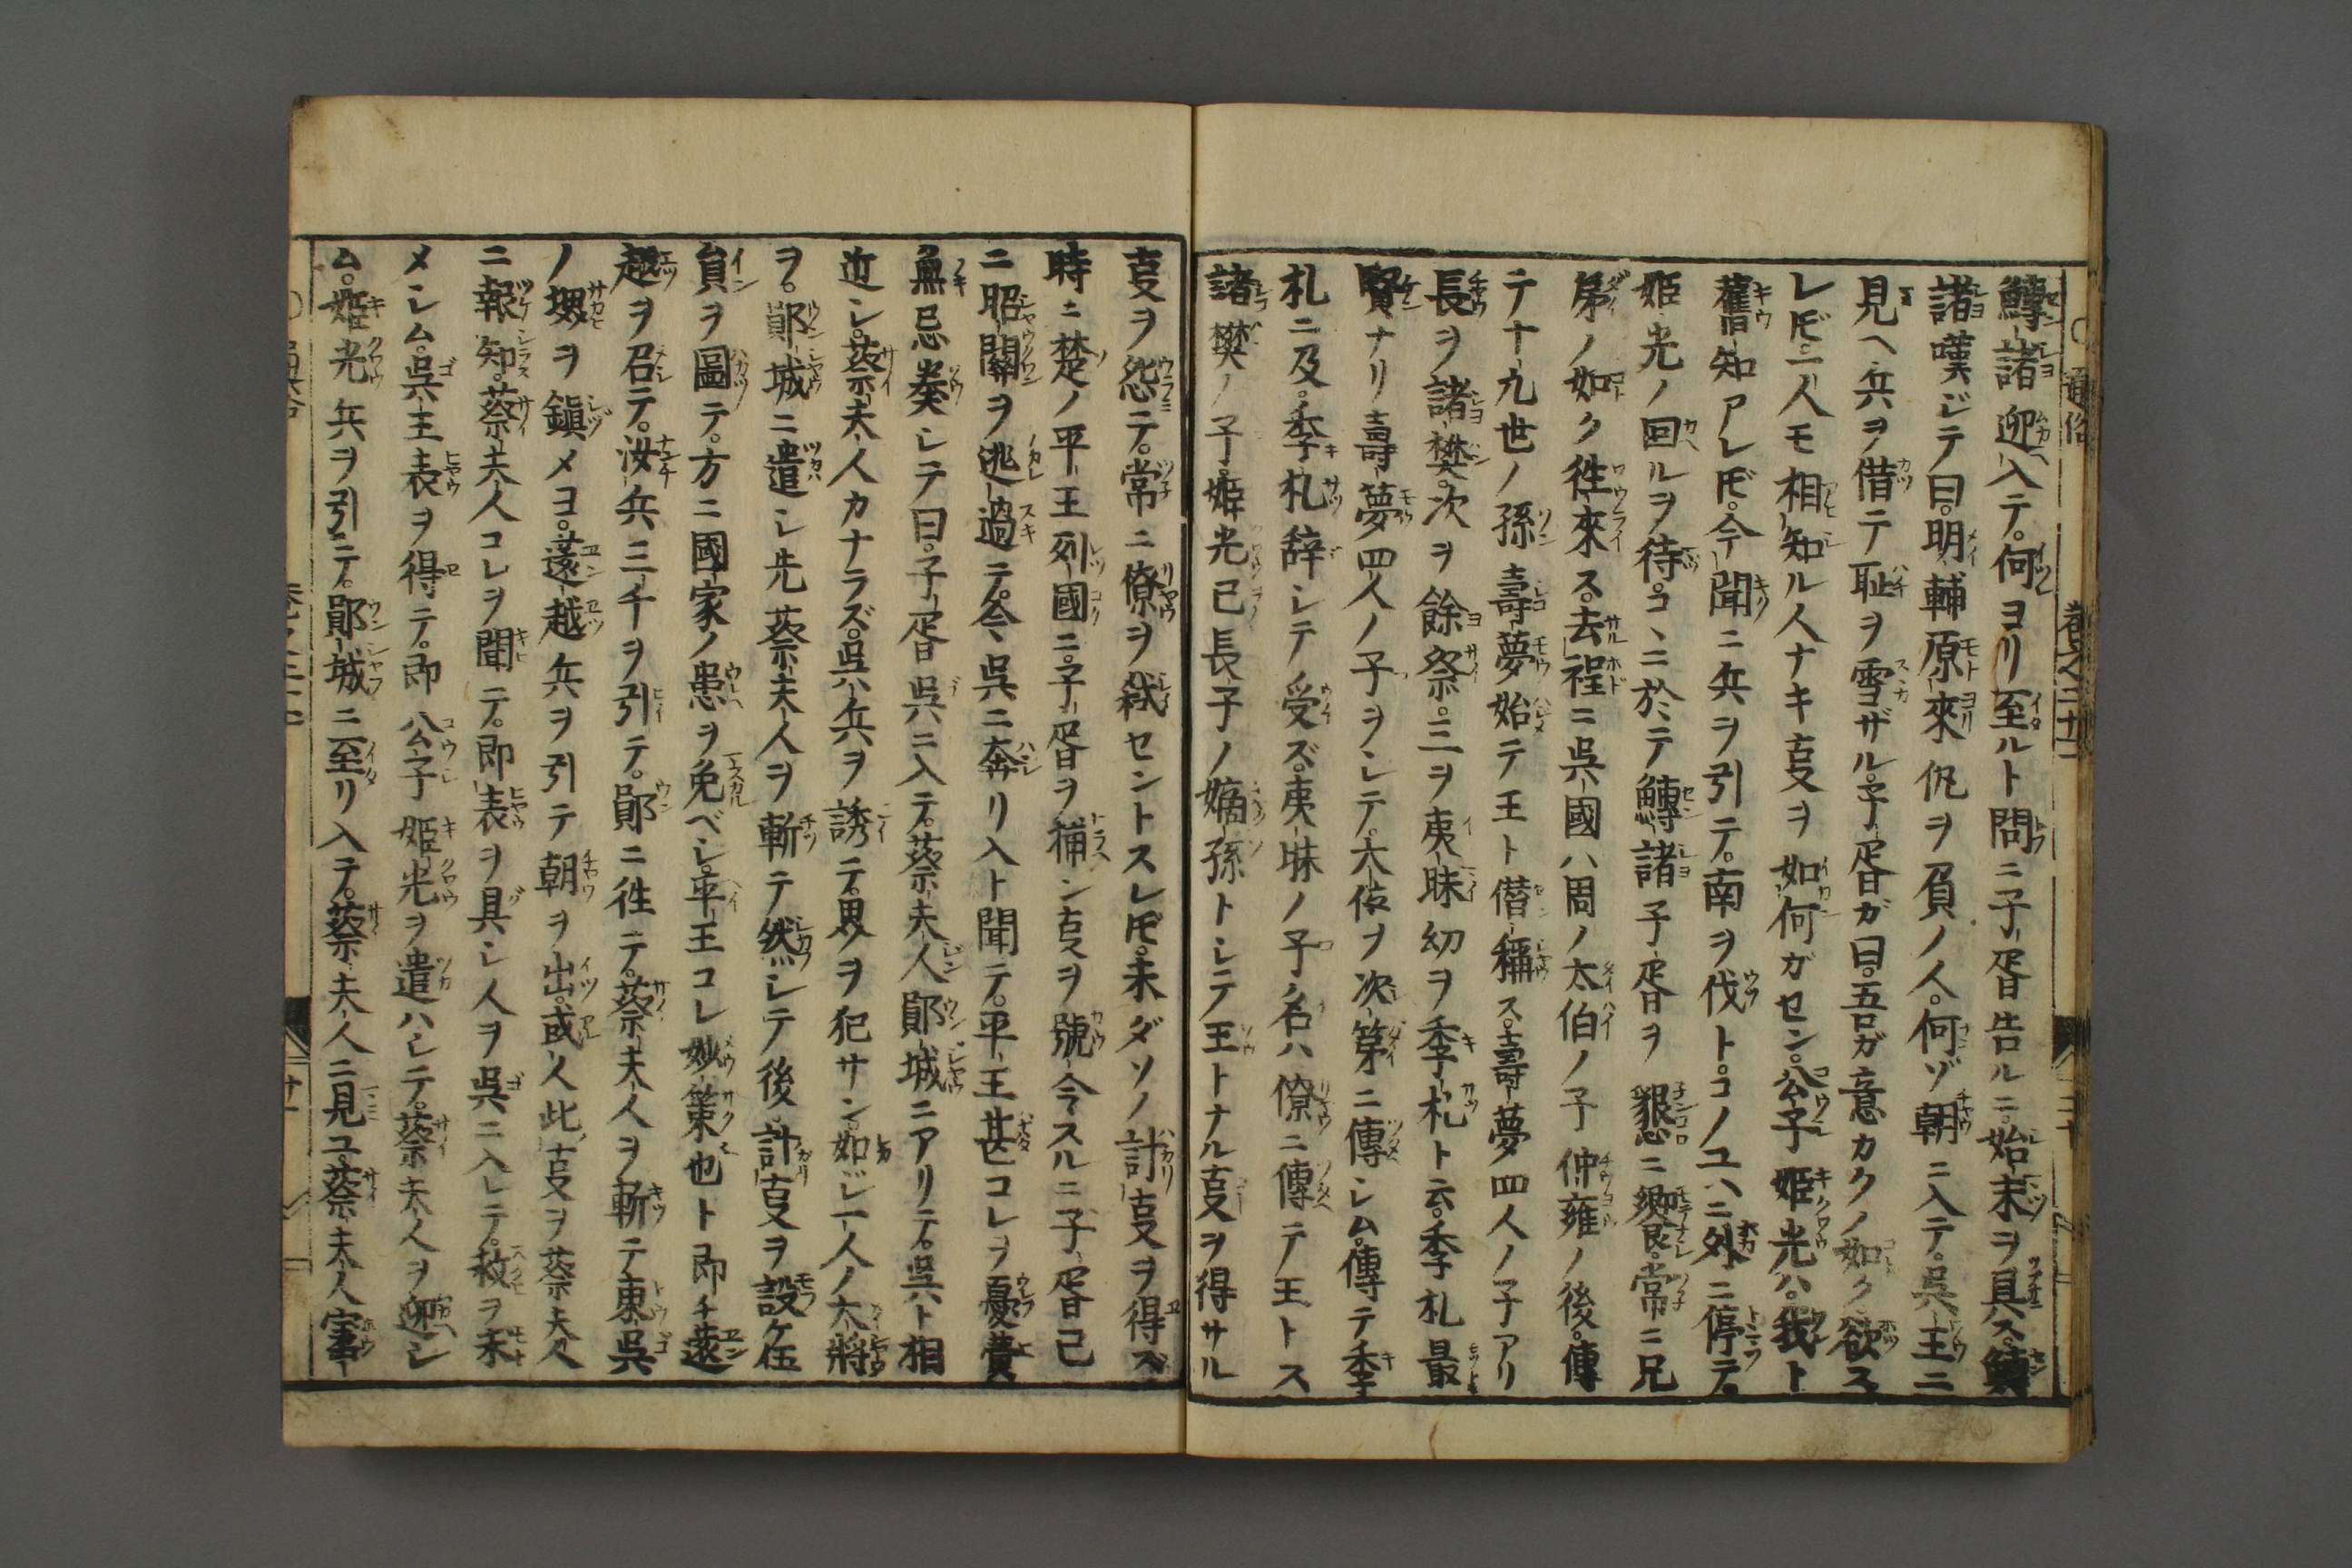 鱄諸迎入テ。何ヨリ至ルト問ニ子胥告ルニ。始末ヲ具ス。鱄
諸嘆ジテ曰。明輔原來仇ヲ負ノ人。何ゾ朝ニ入テ。呉王ニ
見ヘ兵ヲ借テ恥ヲ雪ザル。子胥ガ曰。吾ガ意カクノ如ク欲ス
レ𪜈。一人モ相知ル人ナキ𫝆ヲ如何ガセン。公子姫光ハ。我ト
舊知アレ𪜈。今聞ニ兵ヲ引テ。南ヲ伐ト。コノユヘニ外ニ停テ。
姫光ノ回ルヲ待。コヽニ於テ鱄諸子胥ヲ懇ニ饗。常ニ兄
弟ノ如ク徃來ス。去程ニ呉國ハ周ノ太伯ノ子仲雍ノ後。傳
テ十九世ノ孫壽夢始テ王ト僣稱ス。壽夢四人ノ子アリ
長ヲ諸樊。次ヲ餘祭。三ヲ夷昧幼ヲ季札ト云。季札最
賢ナリ壽夢四人ノ子ヲシテ。大位ヲ次第ニ傳シム。傳テ季
札ニ及。季札辞シテ受ズ。夷昧ノ子名ハ僚ニ傳テ王トス
諸樊ノ子姫光己長子ノ嫡孫トシテ王トナル𫝆ヲ得サル
𫝆ヲ怨テ。常ニ僚ヲ弑セントスレ𪜈。未ダソノ計𫝆ヲ得ズ
時ニ楚ノ平王列國ニ。子胥ヲ捕ン𫝆ヲ號令スルニ子胥已
ニ昭關ヲ逃過テ。今呉ニ奔リ入ト聞テ。平王甚コレヲ憂費
無忌奏シテ曰。子胥呉ニ入テ。蔡夫人鄖城ニアリテ。呉ト相
近シ。蔡夫人カナラズ。呉ノ兵ヲ誘テ。界ヲ犯サン。如ジ一人ノ大將
ヲ。鄖城ニ遣シ先蔡夫人ヲ斬テ然シテ後。計𫝆ヲ設ケ伍
員ヲ圖テ。方ニ國家ノ患ヲ免ベシ。平王コレ妙策也ト即チ薳
越ヲ召テ。汝兵三千ヲ引テ。鄖ニ徃テ。蔡夫人ヲ斬テ東呉
ノ堺ヲ鎭メヨ。薳越兵ヲ引テ朝ヲ出。或人此𫝆ヲ蔡夫人
ニ報知。蔡夫人コレヲ聞テ。即表ヲ具シ人ヲ呉ニ入レテ。救ヲ求
メシム。呉王表ヲ得テ。即公子姫光ヲ遣ハシテ。蔡夫人ヲ迎シ
ム。姫光兵ヲ引テ。鄖城ニ至リ入テ。蔡夫人ニ見ユ。蔡夫人寳